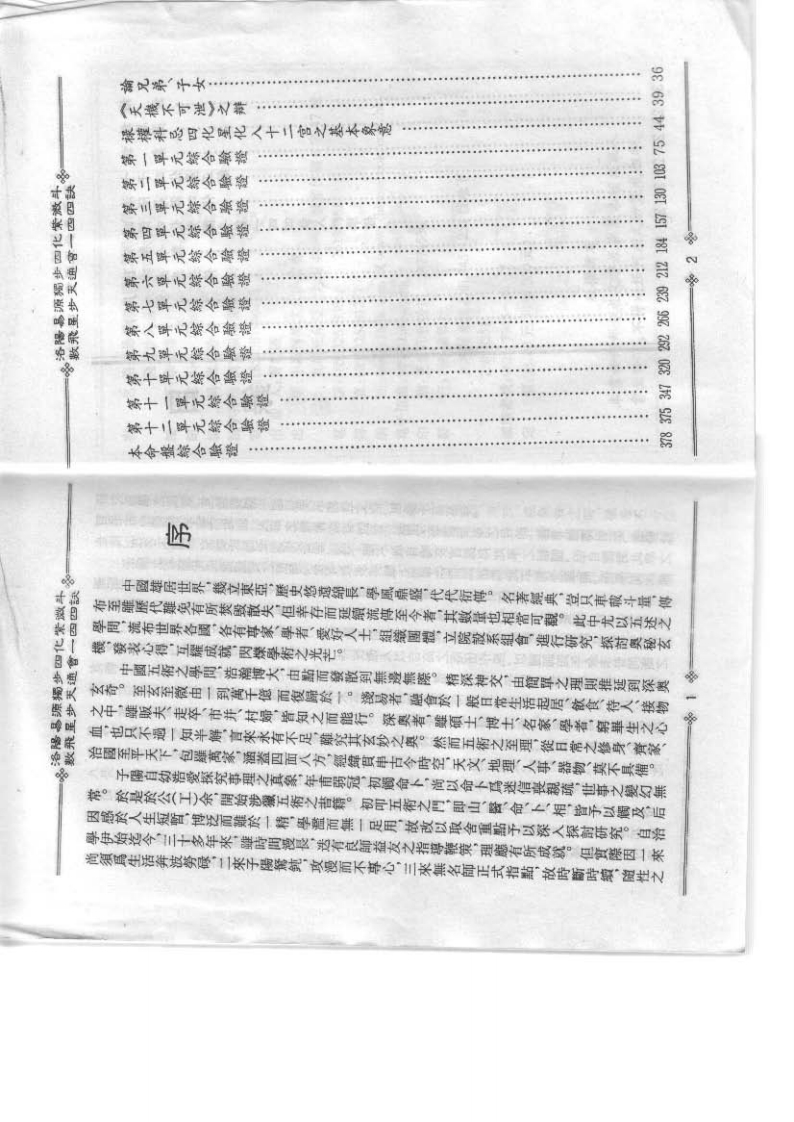 洛陽易源獨步四化紫微斗
數飛星步天通會一四四訣
論兄弟、子女 36
《天機不可泄》之辯 39
祿權科忌四化星化入十二宮之基本象意 44
第一單元綜合驗證 75
第二單元綜合驗證 103
第三單元綜合驗證 130
第四單元綜合驗證 157
第五單元綜合驗證 184
第六單元綜合驗證 212
第七單元綜合驗證 239
第八單元綜合驗證 266
第九單元綜合驗證 292
第十單元綜合驗證 320
第十一單元綜合驗證 347
第十二單元綜合驗證 375
本命盤綜合驗證 378
2
洛陽易源獨步四化紫微斗
數飛星步天通會一四四訣
序
中國雄居世界,幾立東亞,歷史悠遠綿長,學風鼎盛,代代衍傳。名著經典,豈只車載斗量,傳
布至雖歷代難免有所焚毀散失,但幸存而延續流傳至今者,其數量也相當可觀。此中尤以五述之
學問,流布世界各國,各有專家、學者、愛好人士,組織團體,立院設系組會,進行研究,探討奧秘玄
機,發表心得,互耀成就,閃爍學術之光芒。
中國五術之學問,浩瀚博大,由點而發散到無邊無際。精深神交,由簡單之理則推延到深奧
玄奇。至玄至微由一到萬千億而復歸於一。淺易者,融會於一般日常生活起居、飲食、待人、接物
之中,雖販夫、走卒、市井、村婦,皆知之而能行。深奧者,雖碩士、博士、名家、學者,窮畢生之心
血,也只不過一知半解,言來永有不足,難究其玄妙之奧。然而五術之至理,從日常之修身、齊家、
治國至平天下,包羅萬家,涵蓋四面八方,經緯貫串古今時空,天文、地理、人事、器物,莫不具備。
子陽自幼浩愛探究事理之真象,年甫弱冠,初國命卜,尚以命卜爲迷信喪親疏,世事之變幻無
常。於是於公(工)余,開始涉獵五術之書籍。初叩五術之門,即山、醫、命、卜、相,皆予以觸及,后
因感於人生短暫,博泛而難於一精,學濫而無一足用,故改以取舍重點予以深入探討研究。自治
學伊始迄今,三十多年來,雖時間漫長,迭有良師益友之指導鞭策,理應有所成就。但實際因一來
尚須爲生活奔波勞碌,二來子陽駑鈍,攻漫而不專心,三來無名師正式指點,故時斷時續,隨性之
1